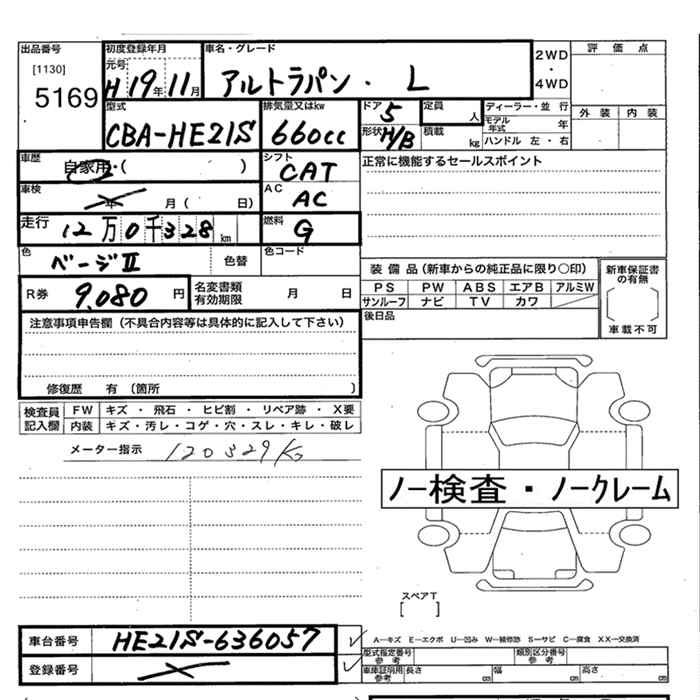 出品番号
[1130]
5169
初度登録年月
元号
H 19年 11月
車名・グレード
アルトラパン・ L
2WD
・
4WD
評価点
外装 内装
型式
CBA-HE21S
排気量又はkw
660cc
ドア 5
形状 H/B
定員 人
積載 kg
ディーラー・並行
モデル年式 年
ハンドル 左・右
車歴
自家用・( )
シフト
CAT
正常に機能するセールスポイント
車検
年 月( 日)
AC
AC
走行
12万0千328km
燃料
G
色
ベージⅡ
色替
色コード
R券
9,080円
名変書類
有効期限
月 日
装備品(新車からの純正品に限り○印)
PS PW ABS エアB アルミW
サンルーフ ナビ TV カワ
後日品
新車保証書
の有無
車載不可
注意事項申告欄(不具合内容等は具体的に記入して下さい)
修復歴 有(箇所 )
検査員
記入欄
FW キズ・飛石・ヒビ割・リペア跡・X要
内装 キズ・汚レ・コゲ・穴・スレ・キレ・破レ
メーター指示 120329Kg
ノー検査・ノークレーム
スペアT
[ ]
車台番号 HE21S-636057
登録番号
A—キズ E—エクボ U—凹み W—補修跡 S—サビ C—腐食 XX—交換済
型式指定番号
参考
類別区分番号
参考
車庫証明用
参考
長さ cm 幅 cm 高さ cm